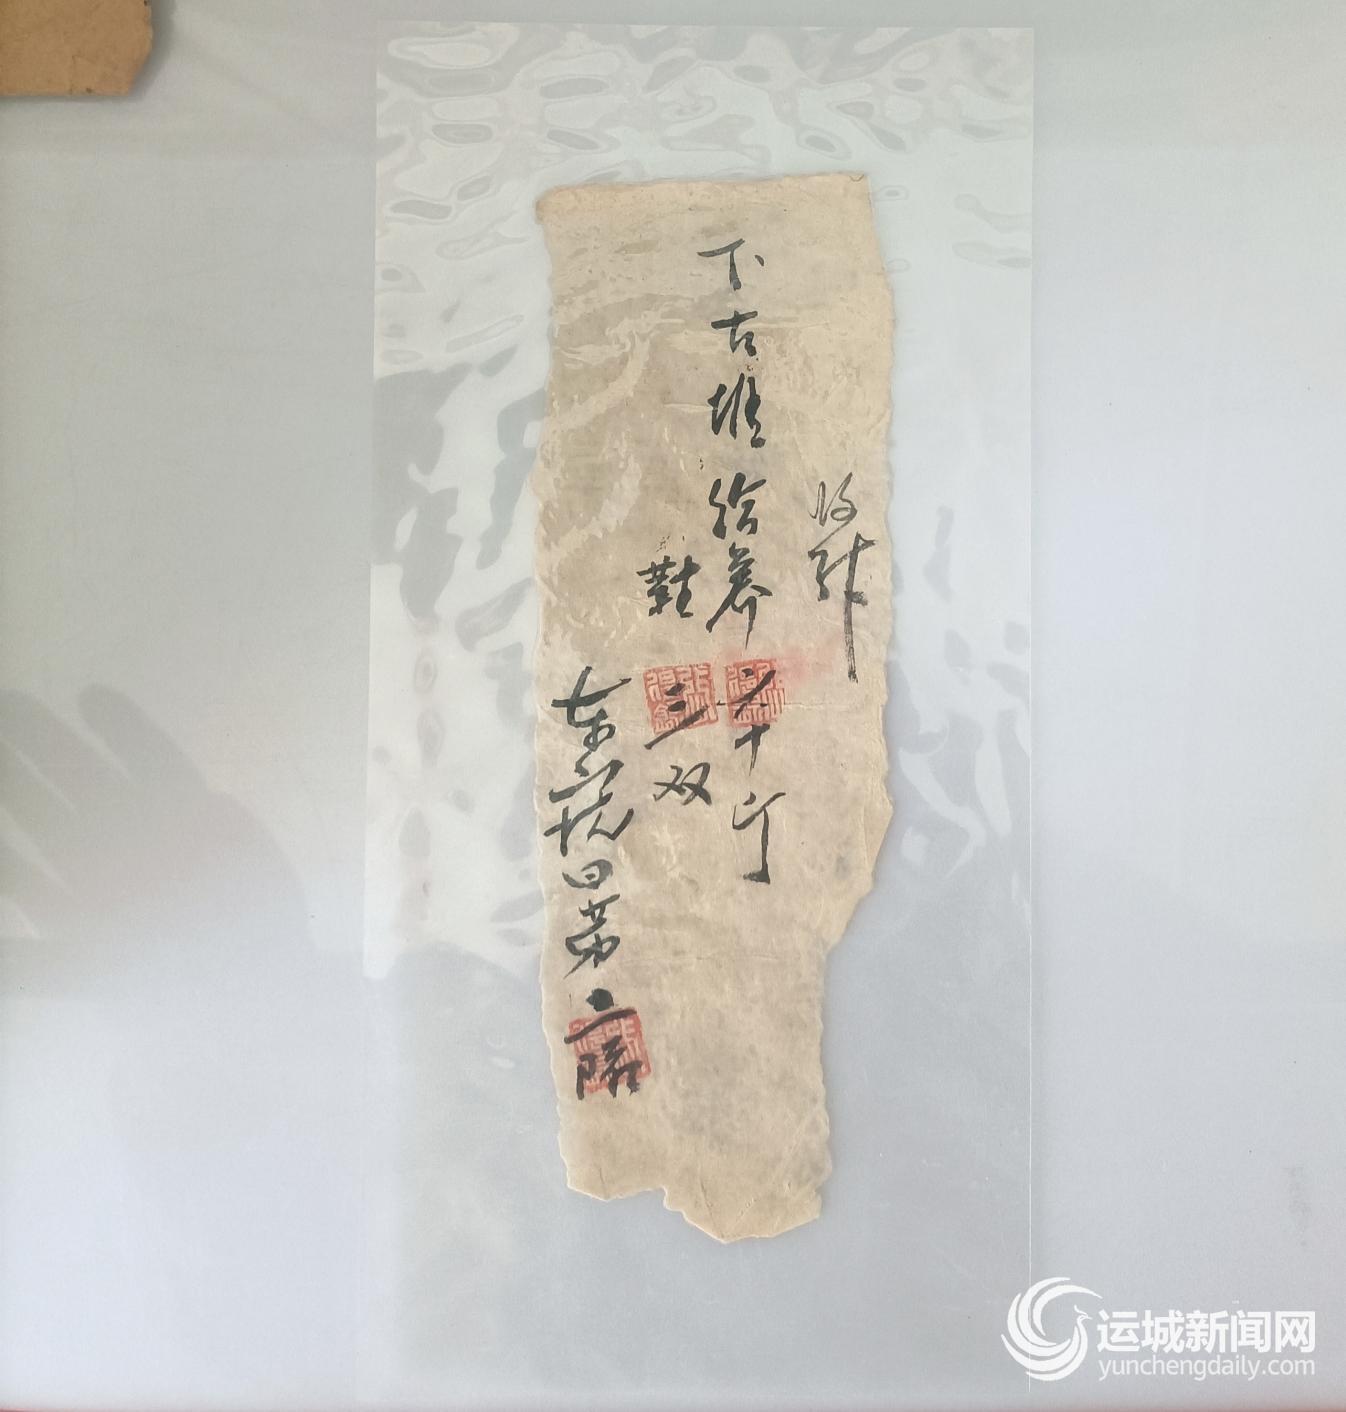 收
下古堆给养六十斤
鞋三双
抗日第二隊
运城新闻网
yunchengdaily.com